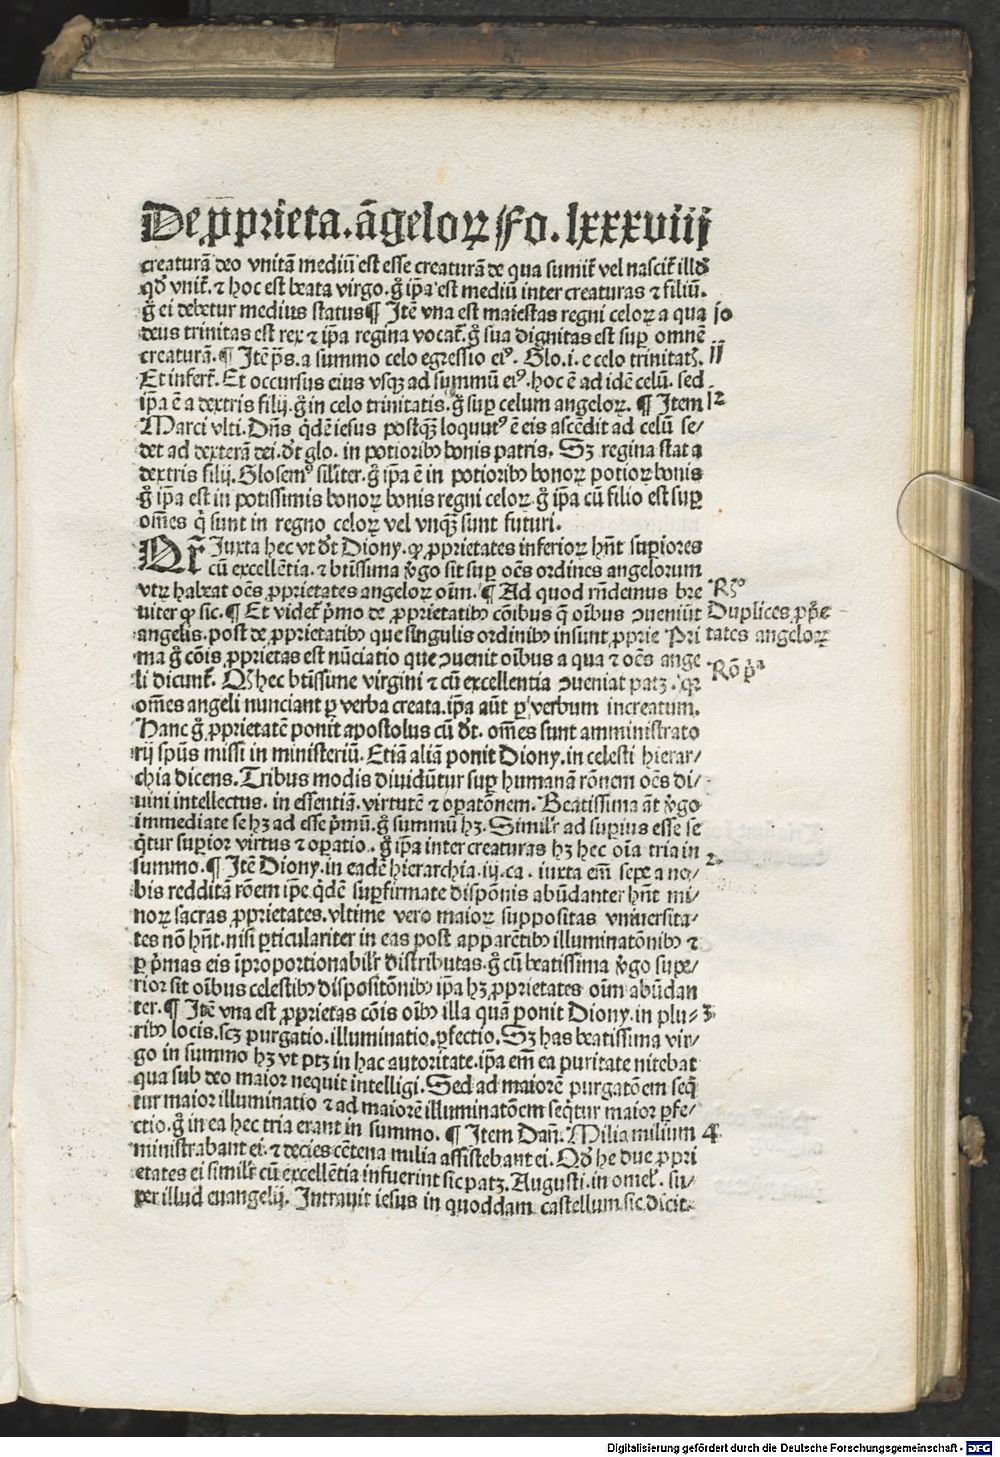 De ꝓprieta. āgeloꝝ Fo. lxxxviij
creaturā deo vnitā mediū est esse creaturā de qua sumit̄ vel nascit̄ illđ
qđ vnit̄. ⁊ hoc est beata virgo. g̊ ip̄a est mediū inter creaturas ⁊ filiū.
g̊ ei debetur medius status ¶ Itē vna est maiestas regni celoꝝ a qua jo
deus trinitas est rex ⁊ ip̄a regina vocat̄. g̊ sua dignitas est suꝑ omnē
creaturā. ¶ Itē p̄s. a summo celo egressio eiꝰ. Glo. i. e celo trinitatꝭ. jj
Et infert̄. Et occursus eius vsqꝫ ad summū eiꝰ. hoc ē ad idē celū. sed
ip̄a ē a dextris filij. g̊ in celo trinitatis. g̊ suꝑ celum angeloꝝ. ¶ Item j2
Marci vlti. Dn̄s q̇dē iesus postqꝫ̄ loquutꝰ ē eis ascēdit ad celū se/
det ad dexterā dei. dr̄t glo. in potioribꝰ bonis patris. Sꝫ regina stat a
dextris filij. Glosemꝰ silĩter. g̊ ip̄a ē in potioribꝰ bonoꝝ potioꝝ bonis
g̊ ip̄a est in potissimis bonoꝝ bonis regni celoꝝ. g̊ ip̄a cū filio est suꝑ
om̄es q̇ sunt in regno celoꝝ vel vnqꝫ̄ sunt futuri.
Qr̄ Iuxta hec vt dr̄t Diony. ꝙ ꝓprietates inferioꝝ hn̄t suꝑiores
cū excellētia. ⁊ btīssima v̇go sit suꝑ oēs ordines angelorum
vtꝝ habeat oēs ꝓprietates angeloꝝ oīm. ¶ Ad quod rn̄demus bre Rꝰ
uiter ꝙ sic. ¶ Et videt̄ p̄mo de ꝓprietatibꝰ cōibus q̄ oībus ꝯueniūt Duplices ꝓp̄e
angelis. post de ꝓprietatibꝰ que singulis ordinibꝰ insunt ꝓprie Pri tates angeloꝝ
ma g̊ cōis ꝓprietas est nūciatio que ꝯuenit oībus a qua ⁊ oēs ange Rō p̄ᵃ
li dicunt̄. Qđ hec btīssime virgini ⁊ cū excellentia ꝯueniat patꝫ. qꝛ
om̄es angeli nunciant ꝑ verba creata. ip̄a aūt ꝑ verbum increatum.
Hanc g̊ ꝓprietatē ponit apostolus cū dr̄t. om̄es sunt amministrato
rij spūs missi in ministeriū. Etiā aliā ponit Diony. in celesti hierar/
chia dicens. Tribus modis diuidūtur suꝑ humanā rōnem oēs di/
uini intellectus. in essentiā. virtutē ⁊ oꝑatōnem. Beatissima āt v̇go
immediate se hꝫ ad esse p̄mū. g̊ summū hꝫ. Simil̄r ad suꝑius esse se
q̄tur suꝑior virtus ⁊ oꝑatio. g̊ ip̄a inter creaturas hꝫ hec oīa tria in
summo. ¶ Itē Diony. in eadē hierarchia. iij. ca. iuxta em̄ sepe a no/ 2.
bis redditā rōem ip̄e q̇dē suꝑfirmate dispōnis abūdanter hn̄t mi/
noꝝ sacras ꝓprietates. vltime vero maioꝝ suppositas vniuersita/
tes nō hn̄t. nisi ꝑticulariter in eas post apparētibꝰ illuminatōnibꝰ ⁊
ꝑ p̄mas eis īproportionabil̄r distributas. g̊ cū beatissima v̇go supe/
rior sit oībus celestibꝰ dispositōnibꝰ ip̄a hꝫ ꝓprietates oīm abūdan
ter. ¶ Itē vna est ꝓprietas cōis oībꝰ illa quā ponit Diony. in plu⸗ 3
ribꝰ locis. scꝫ purgatio. illuminatio. ꝑfectio. Sꝫ has beatissima vir/
go in summo hꝫ vt ptꝫ in hac autoritate. ip̄a em̄ ea puritate nitebat
qua sub deo maior nequit intelligi. Sed ad maiorē purgatōem seq̄
tur maior illuminatio ⁊ ad maiorē illuminatōem seq̄tur maior ꝑfe/
ctio. g̊ in ea hec tria erant in summo. ¶ Item Dan̄. Milia milium 4
ministrabant ei. ⁊ decies cētena milia assistebant ei. Qđ he due ꝓpri
etates ei simil̄r cū excellētia infuerint sic patꝫ. Augusti. in omel̄. su/
per illud euangelij. Intrauit iesus in quoddam castellum. sic dicit.
Digitalisierung gefördert durch die Deutsche Forschungsgemeinschaft - DFG